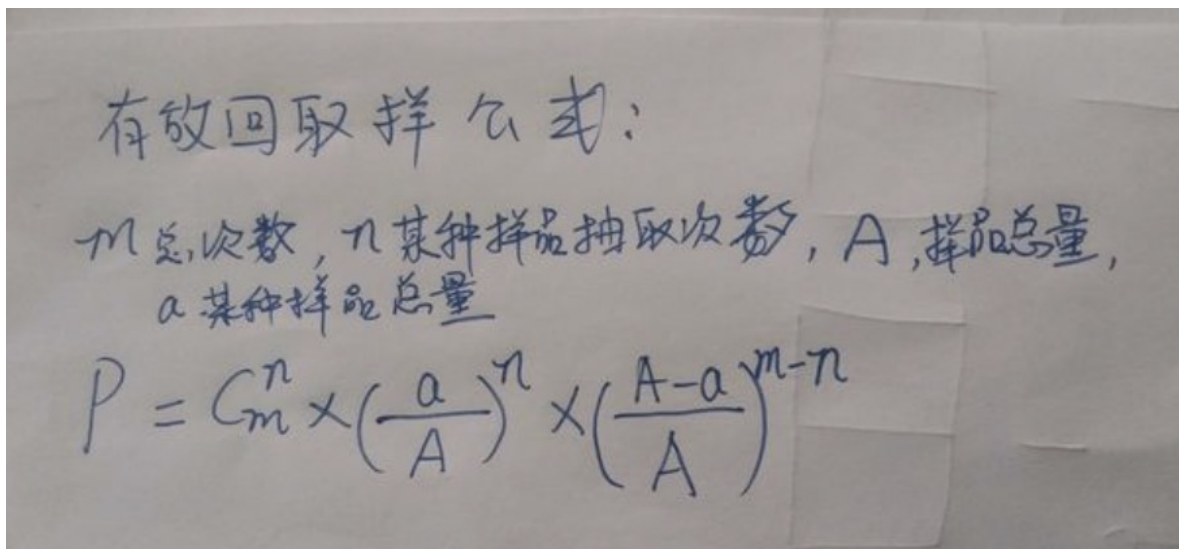 有放回取样公式:
m总次数, n某种样品抽取次数, A,样品总量,
a某种样品总量
P = C_m^n × (a/A)^n × ((A-a)/A)^{m-n}